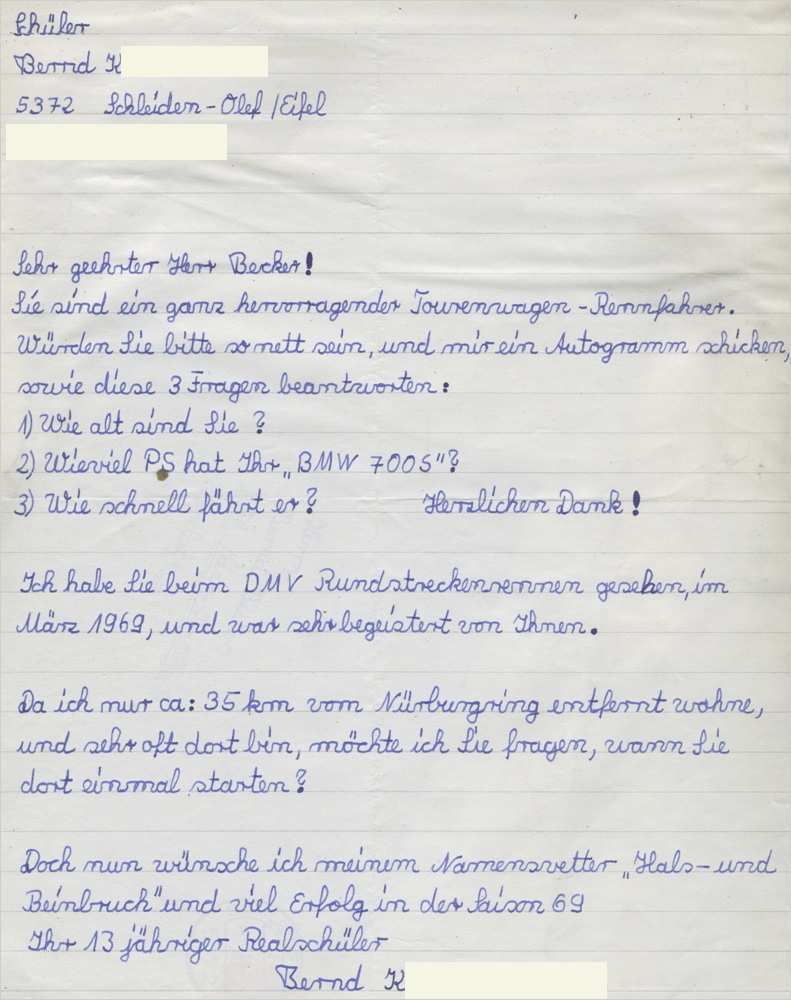 Schüler
Bernd K
5372 Schleiden-Olef/Eifel
Sehr geehrter Herr Becker!
Sie sind ein ganz hervorragender Tourenwagen-Rennfahrer.
Würden Sie bitte so nett sein, und mir ein Autogramm schicken,
sowie diese 3 Fragen beantworten:
1) Wie alt sind Sie?
2) Wieviel PS hat Ihr „BMW 700S"?
3) Wie schnell fährt er? Herzlichen Dank!
Ich habe Sie beim DMV Rundstreckenrennen gesehen, im
März 1969, und war sehr begeistert von Ihnen.
Da ich nur ca: 35 km vom Nürburgring entfernt wohne,
und sehr oft dort bin, möchte ich Sie fragen, wann Sie
dort einmal starten?
Doch nun wünsche ich meinem Namensvetter „Hals- und
Beinbruch" und viel Erfolg in der Saison 69
Ihr 13 jähriger Realschüler
Bernd K